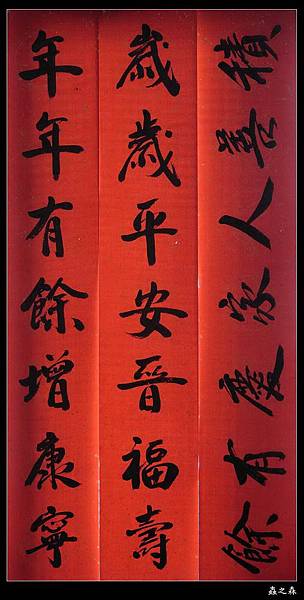 積善人家慶有餘
歲歲平安晉福壽
年年有餘增康寧